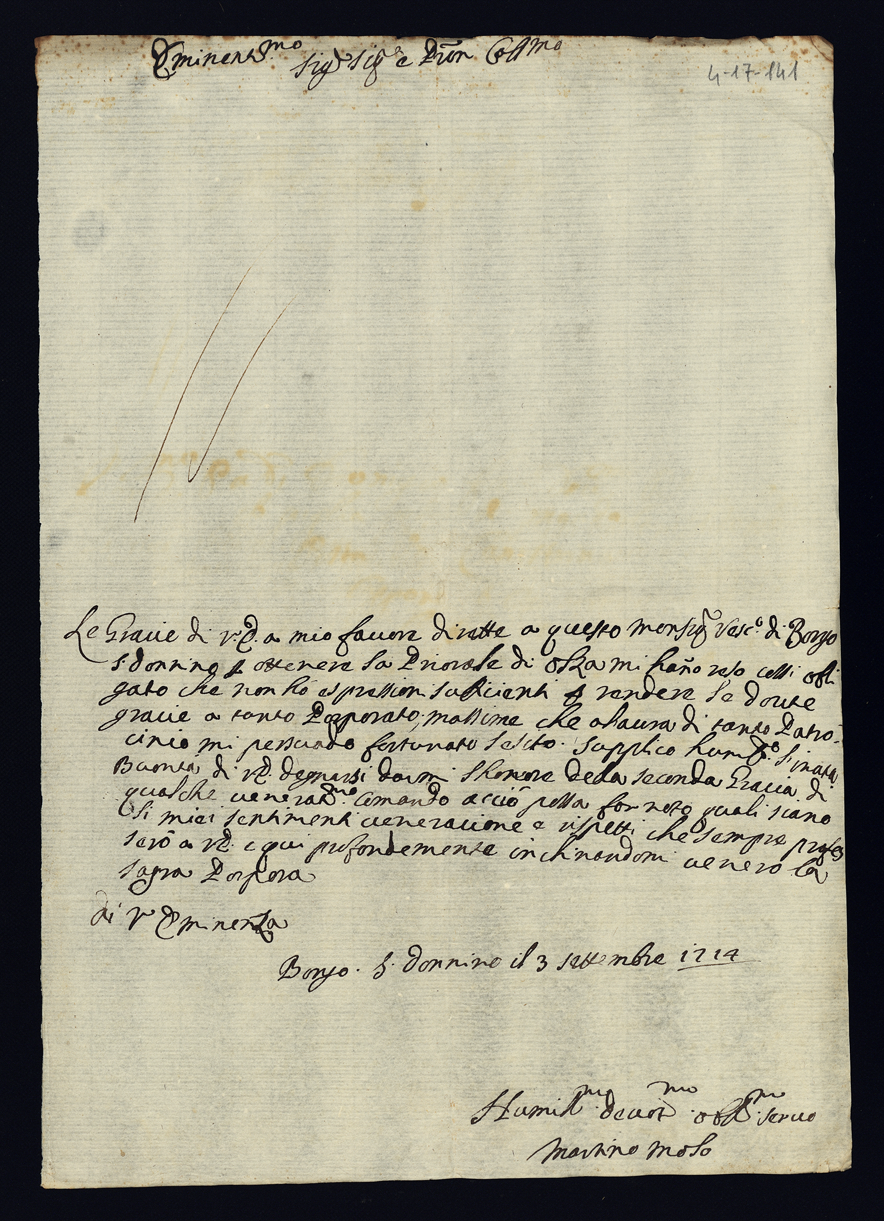 Eminent.mo
Sig.r Sig.r e Pron Coll.mo
4-17-141
Le Gracie di V.E. a mio favore dirette a questo Monsig.r Vesc.o di Borgo
S. Donnino p ottenere la Priorale di mi hano reso cossi obli
gato che non hò espression suficienti p rendere le doute
gracie a tanto Porporato, massime che a laura di tanto Patro-
cinio mi persuado fortunato l'esito. Supplico hum.o l'inata
Buontà di V.E. degnarsi darmi l'honore dela seconda Gracia di
qualche venerat.mo Comando acciò possa far noto quali siano
li miei sentimenti veneracione e rispetti che sempre profes
serò a V.E. e qui profondemente inchinandomi venero la
sagra Porpora
di V. Eminenza
Borgo S. Donnino il 3 settembre 1714
Humil.mo devot.mo obl.mo servo
Martino Molo